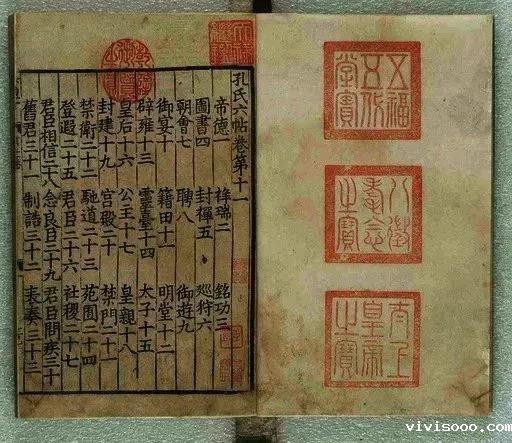 五福五代堂寶
八徵耄念之寶
太上皇帝之寶
天祿繼鑑
乾隆御覽之寶
孔氏六帖卷第十一
帝德一 祥瑞二 銘功三
圖書四 封禪五 巡狩六
朝會七 聘八 御遊九
御宴十 籍田十一 明堂十二
辟雍十三 靈臺十四 太子十五
皇后十六 公主十七 皇親十八
封建十九 宮殿二十 禁門二十一
禁衛二十二 馳道二十三 苑囿二十四
登遐二十五 君臣二十六 社稷二十七
君臣相信二十八 念良臣二十九 君臣問疾三十
舊君三十一 制誥三十二 表奏三十三
www.vivisooo.com